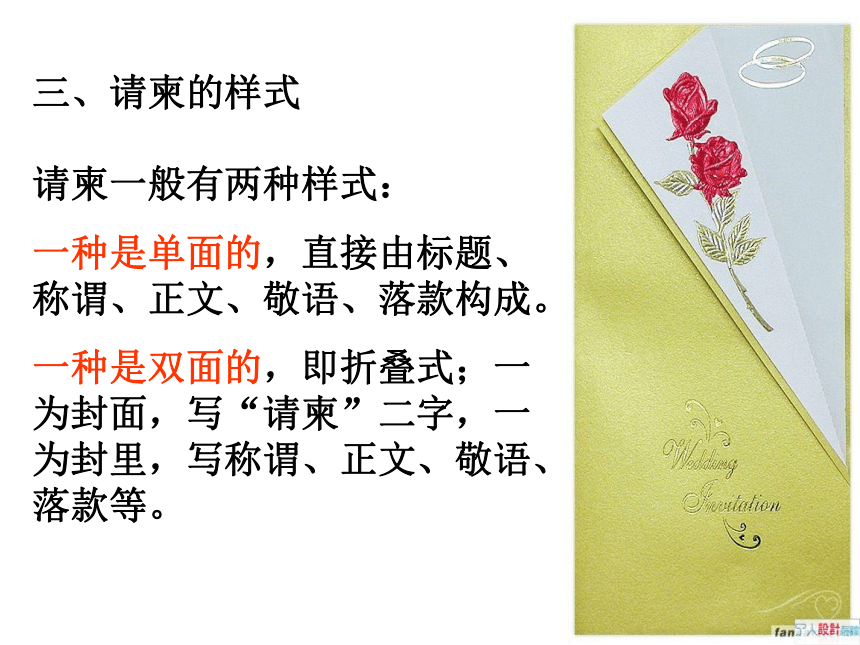 三、请柬的样式
请柬一般有两种样式：
一种是单面的，直接由标题、
称谓、正文、敬语、落款构成。
一种是双面的，即折叠式；一
为封面，写“请柬”二字，一
为封里，写称谓、正文、敬语、
落款等。
Wedding
Invitation